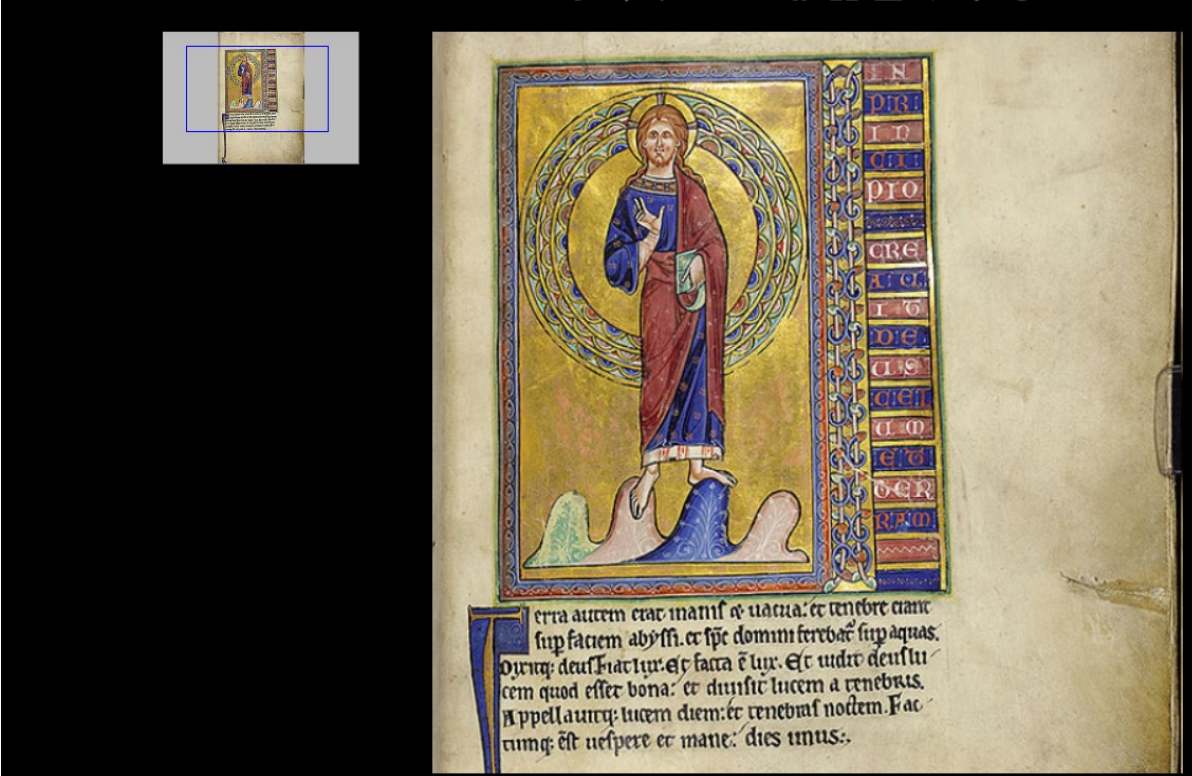 IN
P:R:
IN
C:I:
PIO
CRE
A:U:
IT
D:E:
US
C:E:L
UM
E:T
TER
RAM
Terra autem erat inanis & uacua: et tenebre erant
sup̱ faciem abyssi. et sp̄c domini ferebat̄ sup̱ aquas.
Dixitq: deus Fiat lux. Et facta ē lux. Et uidit deus lu
cem quod esset bona: et diuisit lucem a tenebris.
Appellauitq: lucem diem: et tenebras noctem. Fac
tumq: ēst uespere et mane: dies unus: